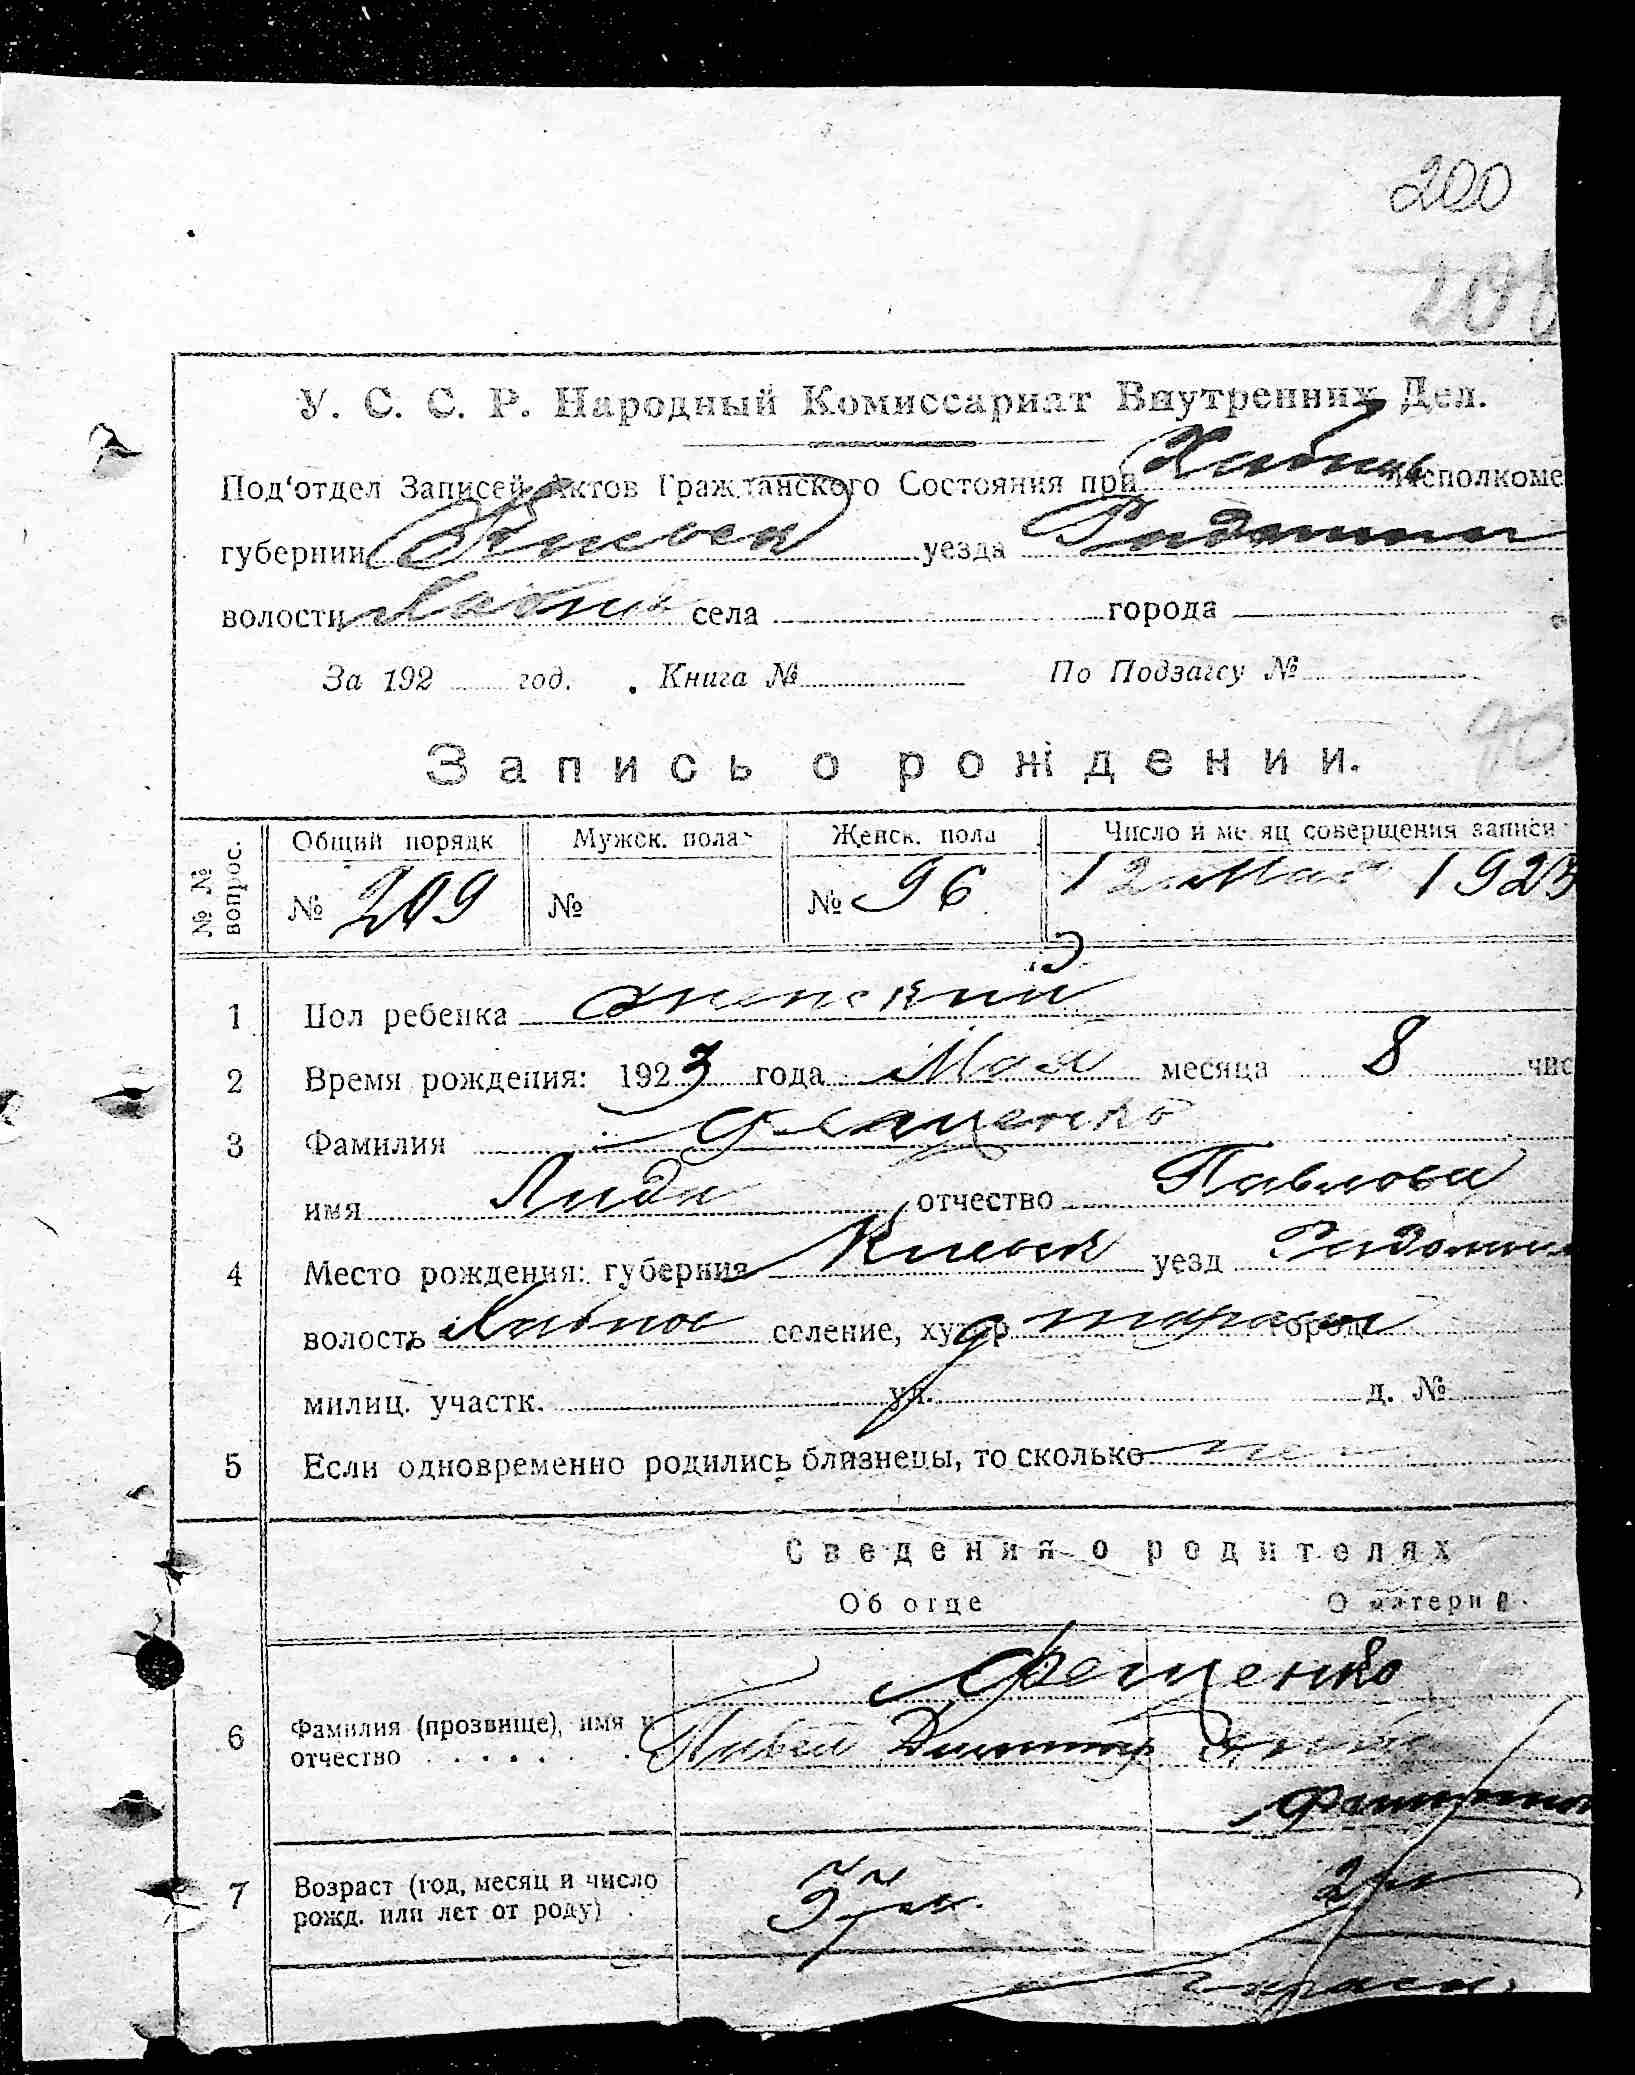 200
У. С. С. Р. Народный Комиссариат Внутренних Дел.
Под'отдел Записей Актов Гражданского Состояния при Хабнск исполкоме
губернии Киевск уезда Радомысл
волости Хабнск села города
За 192 год. Книга № По Подзагсу №
Запись о рождении.
№ № вопрос. Общий порядк Мужск. пола Женск. пола Число и месяц совершения записи
№ 209 № № 96 12 Мая 1923
1 Пол ребенка женский
2 Время рождения: 1923 года Мая месяца 8 чис
3 Фамилия Фещенко
имя Лида отчество Павлова
4 Место рождения: губерния Киевск уезд Радомысл
волость Хабное селение, хутор город
милиц. участк. ул. д. №
5 Если одновременно родились близнецы, то сколько
Сведения о родителях
Об отце О матери
Фещенко
6 Фамилия (прозвище), имя и отчество Павел
7 Возраст (год, месяц и число рожд. или лет от роду)